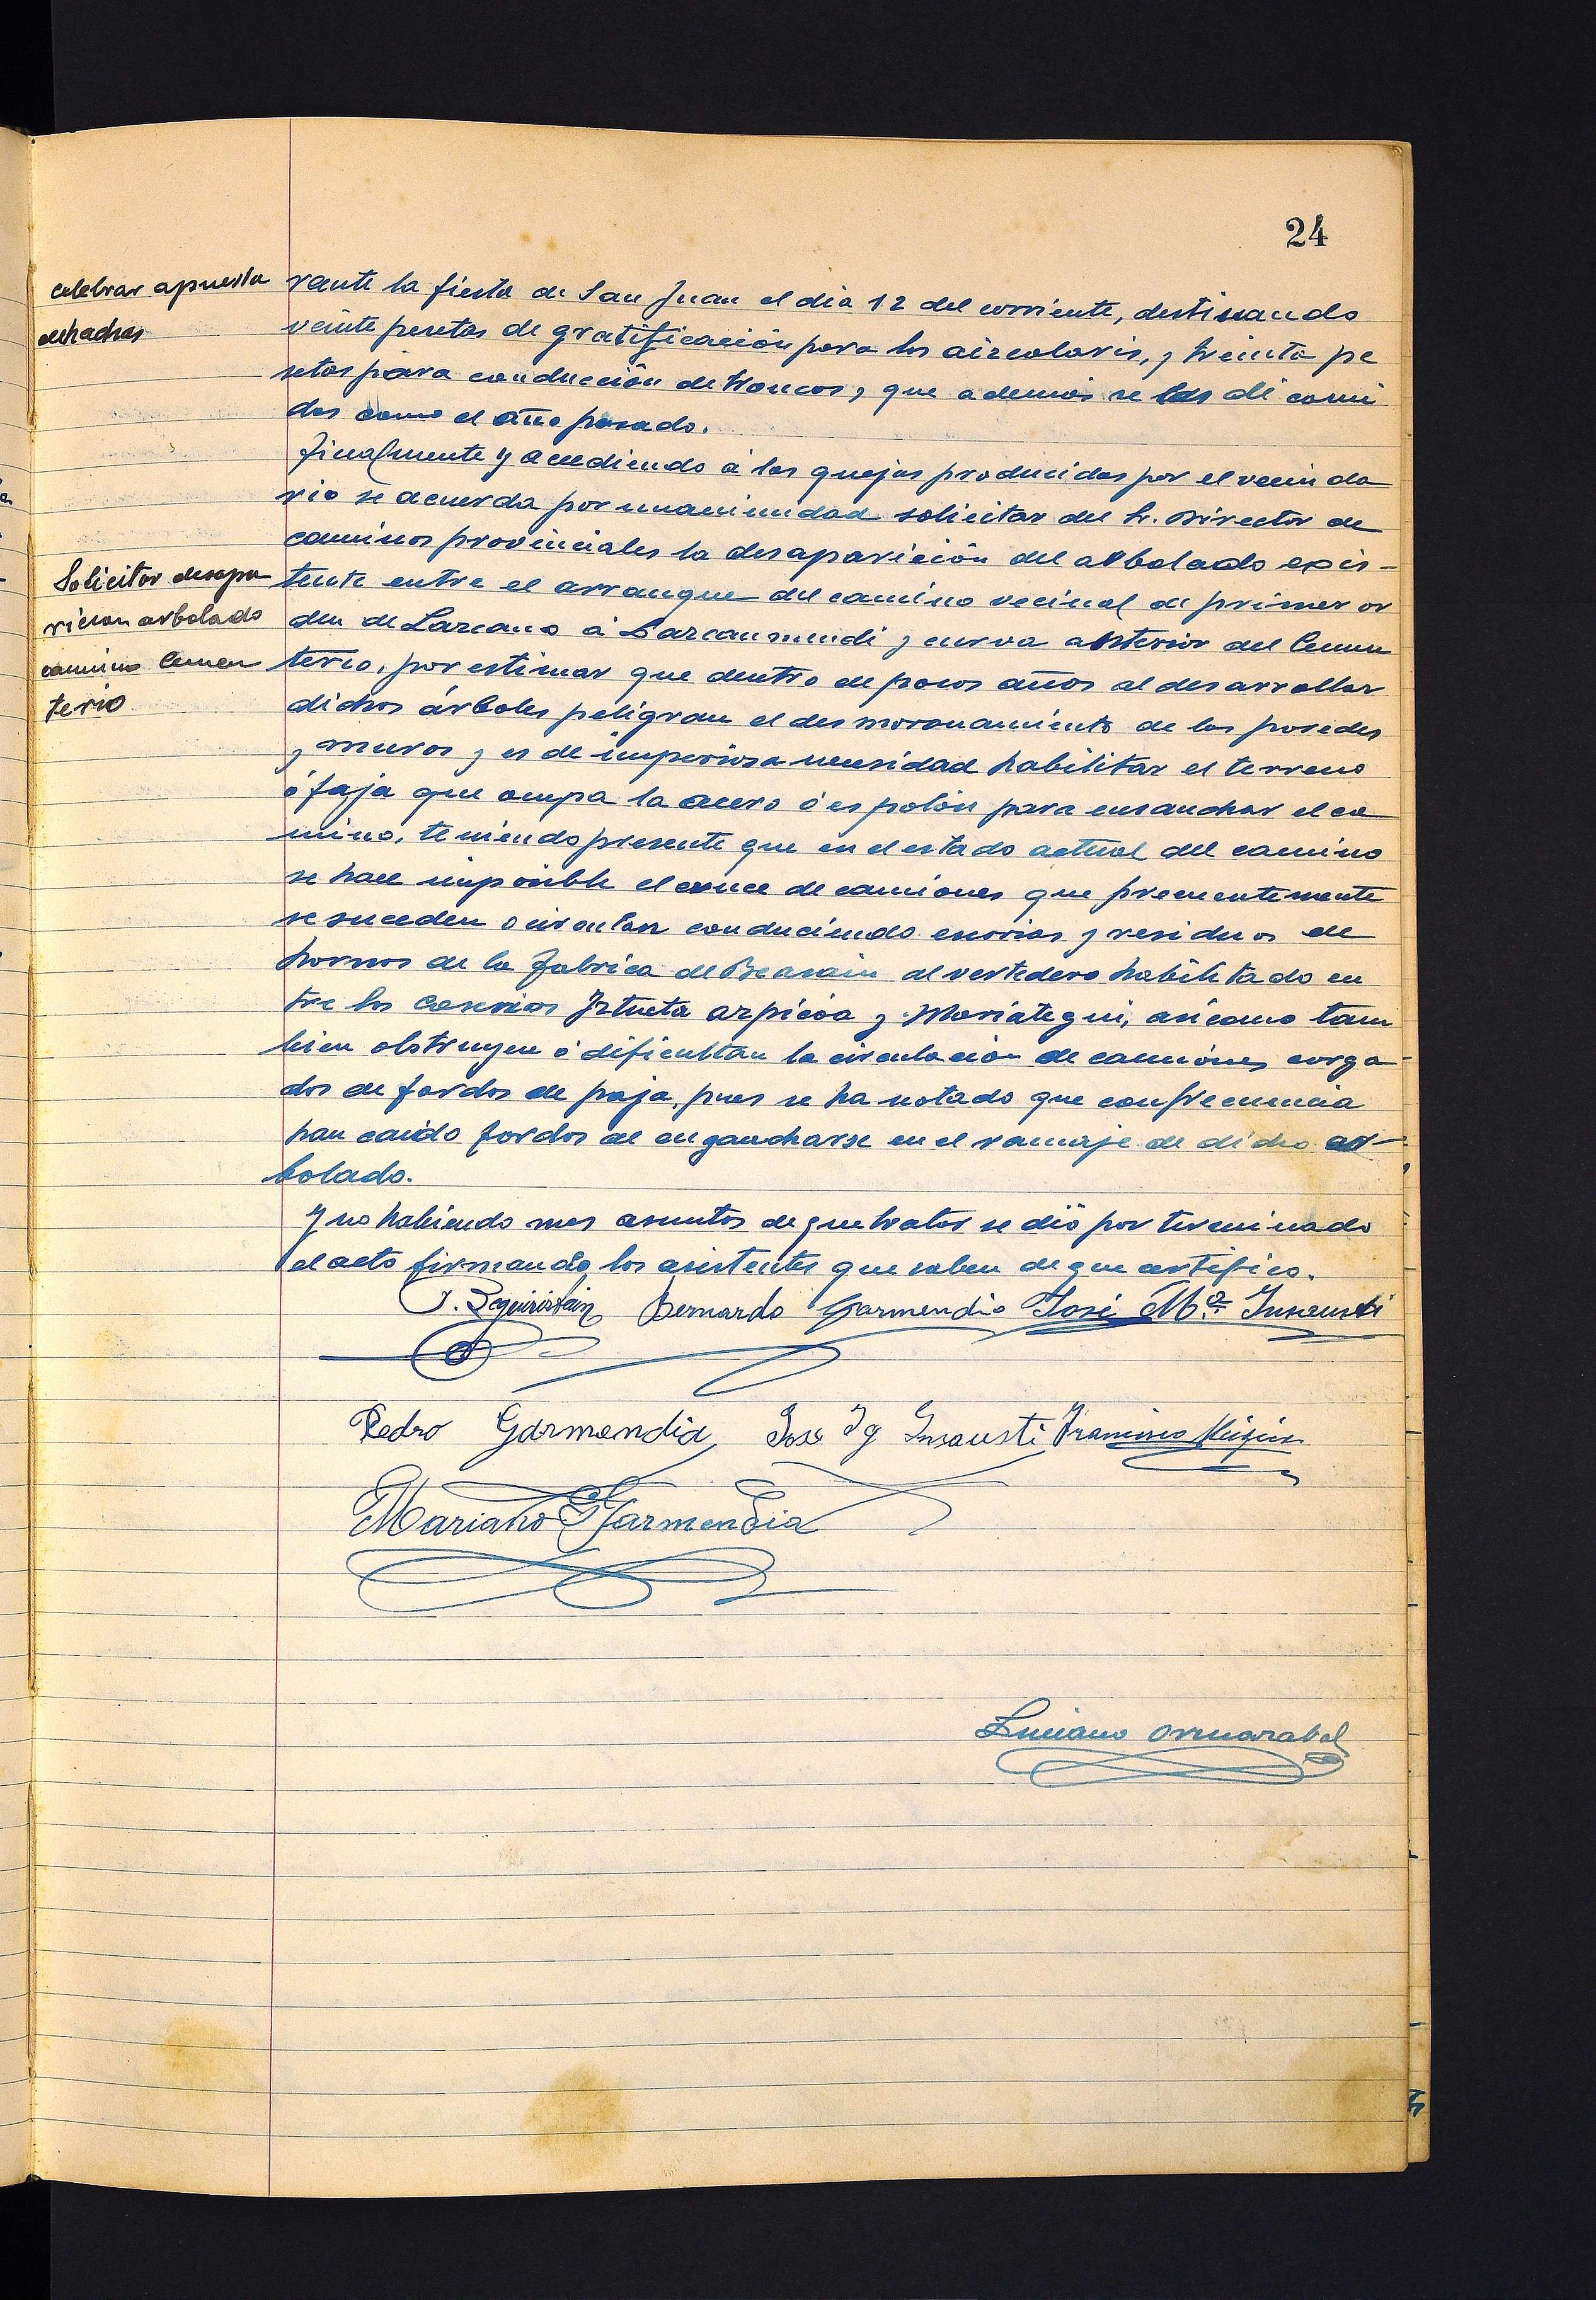 24
celebrar apuesta
de hachas
rante la fiesta de San Juan el dia 12 del corriente, destinando
veinte pesetas de gratificación para los aizcolaris, y treinta pe
setas para conducción de troncos, que además se les dé comi
das como el año pasado.
Finalmente y accediendo á las quejas producidas por el vecinda
rio se acuerda por unanimidad solicitar del Sr. Director de
caminos provinciales la desaparición del arbolado exis-
Solicitar desapa
ricion arbolado
camino Cemen
terio
tente entre el arranque del camino vecinal de primer or
den de Lazcano á Lazcanmendi y curva anterior del Cemen
terio, por estimar que dentro de pocos años al desarrollar
dichos árboles peligran el desmoronamiento de las paredes
y muros y es de imperiosa necesidad habilitar el terreno
ó faja que ocupa la acera ó espolón para ensanchar el ca
mino, teniendo presente que en el estado actual del camino
se hace imposible el cruce de camiones que frecuentemente
se suceden o circulan conduciendo escorias y residuos de
hornos de la fabrica de Beasain al vertedero habilitado en
tre los caserios Iztueta azpicoa y Mariategui, asi como tam
bien obstruyen ó dificultan la circulación de camiones carga-
dos de fardos de paja, pues se ha notado que con frecuencia
han caido fardos al engancharse en el ramaje de dicho ar-
bolado.
Y no habiendo mas asuntos de que tratar se dió por terminado
el acto firmando los asistentes que saben de que certifico.
Bernardo Garmendia José Mª Insausti
Pedro Garmendia Jose Ig Insausti Francisco
Mariano Garmendia
Luciano